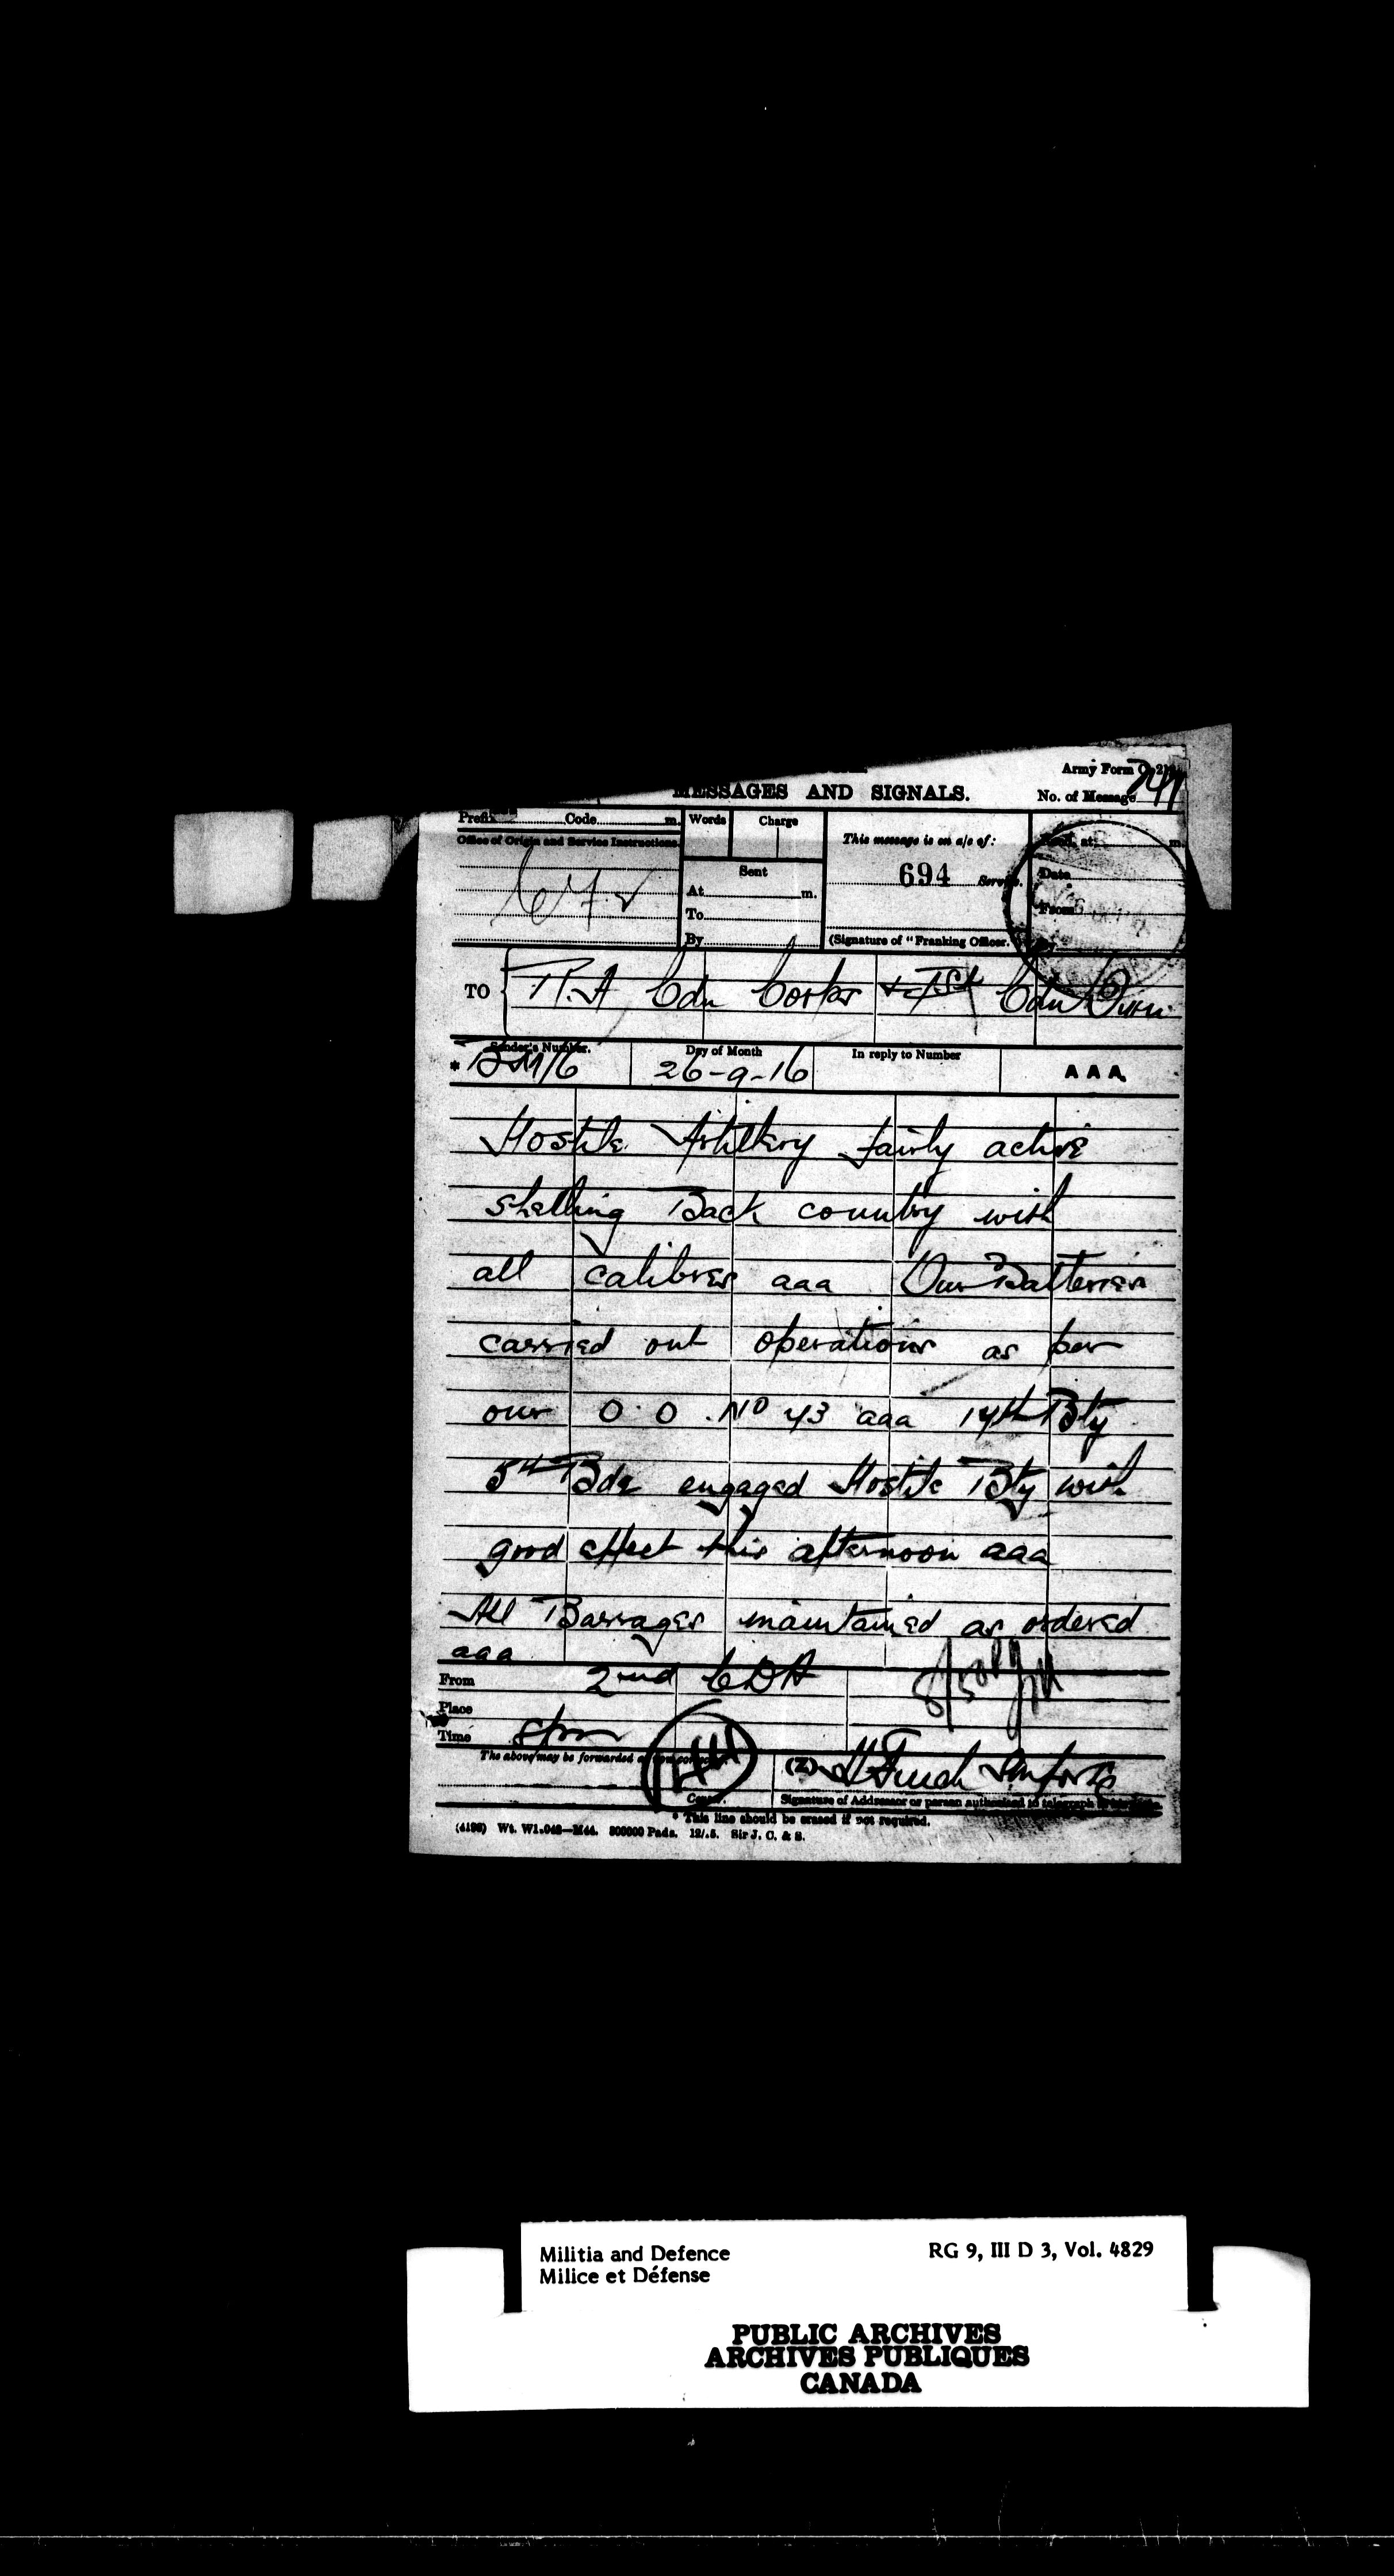 Army Form C. 21
MESSAGES AND SIGNALS.
No. of Message
Prefix Code m.
Words Charge
This message is on a/c of:
Recd. at m.
Office of Origin and Service Instructions.
Sent
694 Service.
Date
At m.
From
To
By
(Signature of "Franking Officer.
By
TO R.A Cdn Corps + 1st Cdn Divn
Sender's Number.
Day of Month
In reply to Number
* BM/6 26-9-16 A A A
Hostile Artillery fairly active
shelling Back country with
all calibres aaa Our Batteries
carried out operations as per
our O.O. No 43 aaa 14th Bty
5th Bde engaged Hostile Bty with
good effect this afternoon aaa
All Barrages maintained as ordered
aaa
From 2nd CDA
Place
Time 8pm
The above may be forwarded as now corrected.
(Z)
Censor.
Signature of Addressor or person authorised to telegraph in
* This line should be erased if not required.
(4198) Wt. W1.048—M44. 300000 Pads. 12/.5. Sir J. C. & S.
Militia and Defence
RG 9, III D 3, Vol. 4829
Milice et Défense
PUBLIC ARCHIVES
ARCHIVES PUBLIQUES
CANADA